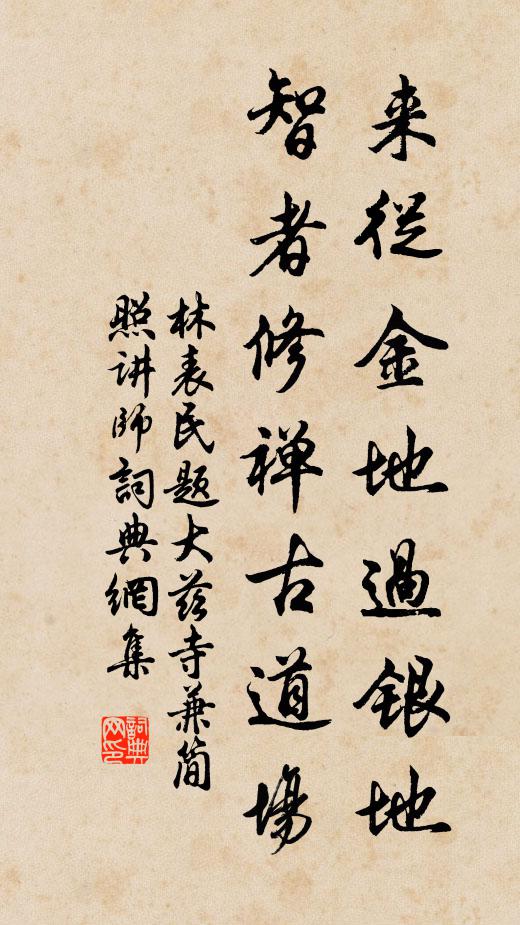 来從金地過銀地
智者修禅古道場
林表民题大慈寺兼简
照讲師詞典網集
詞典網印